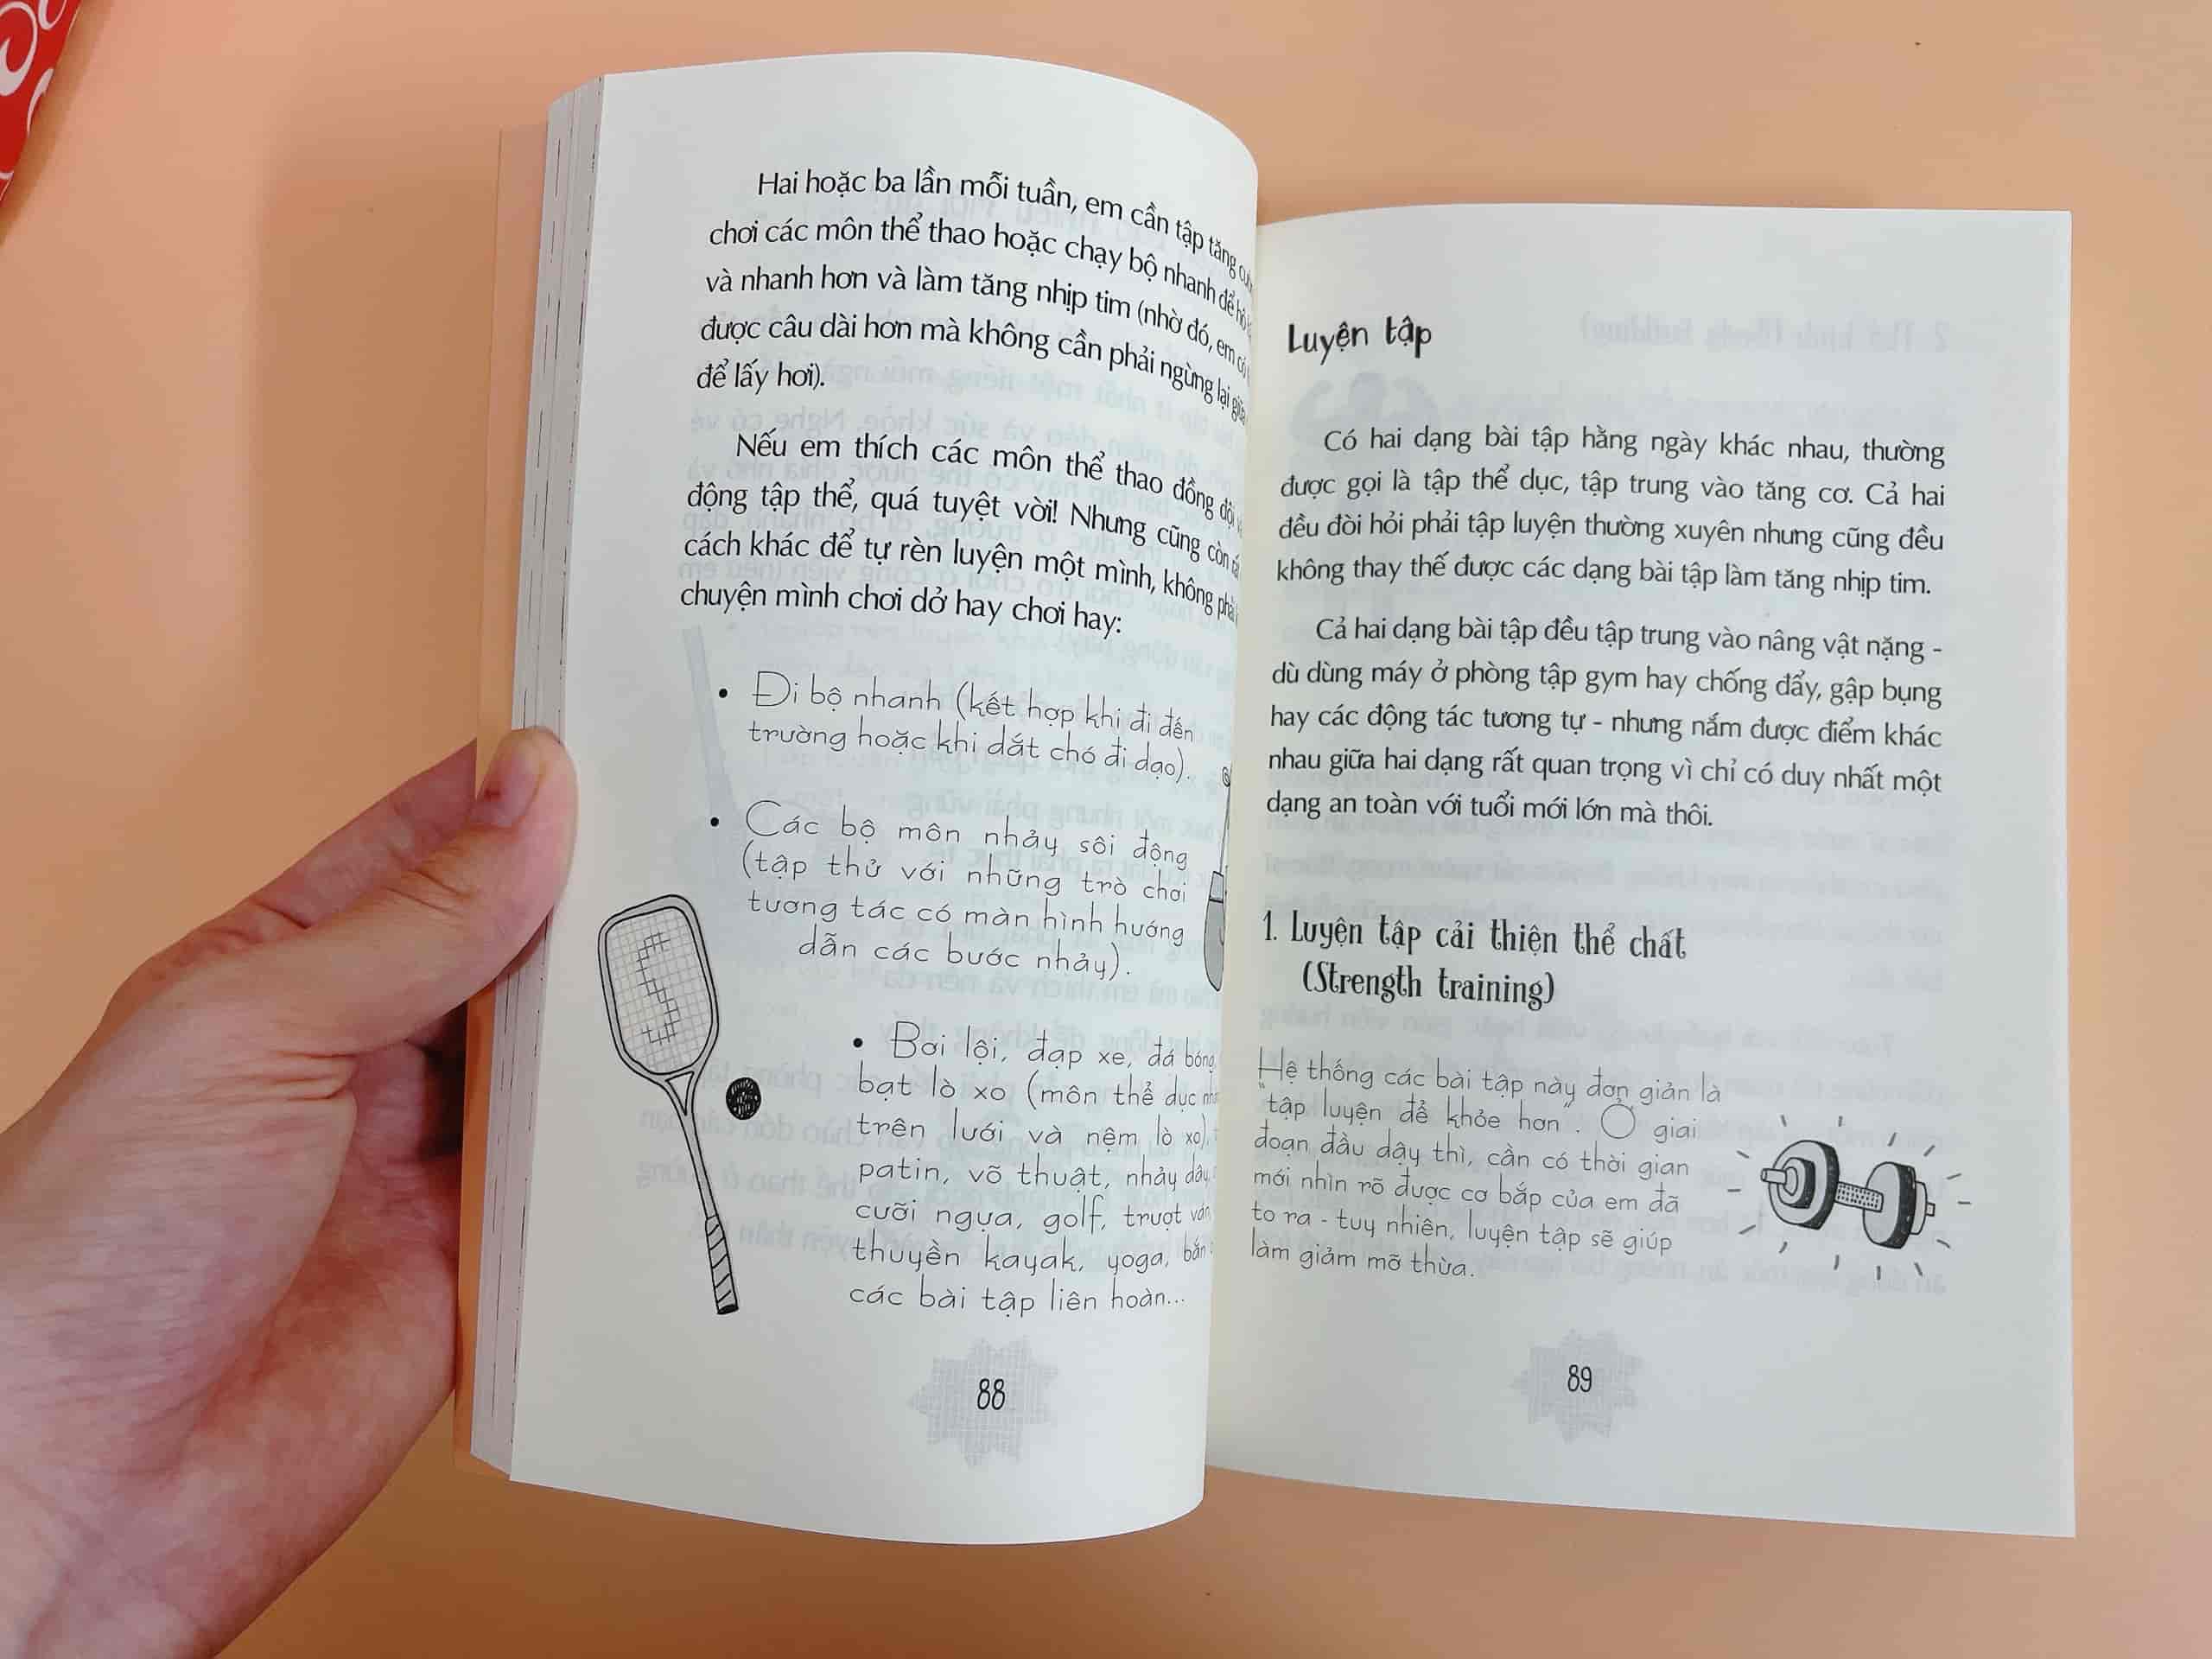 Hai hoặc ba lần mỗi tuần, em cần tập tăng
chơi các môn thể thao hoặc chạy bộ nhanh để
và nhanh hơn và làm tăng nhịp tim (nhờ đó, em
được câu dài hơn mà không cần phải ngừng lại
để lấy hơi).
Nếu em thích các môn thể thao đồng đội
động tập thể, quá tuyệt vời! Nhưng cũng còn
cách khác để tự rèn luyện một mình, không
chuyện mình chơi dở hay chơi hay:
• Đi bộ nhanh (kết hợp khi đi đến
trường hoặc khi dắt chó đi dạo).
• Các bộ môn nhảy sôi động
(tập thử với những trò chơi
tương tác có màn hình hướng
dẫn các bước nhảy).
• Bơi lội, đạp xe, đá bóng,
bạt lò xo (môn thể dục
trên lưới và nệm lò xo),
patin, võ thuật, nhảy dây,
cưỡi ngựa, golf, trượt ván,
thuyền kayak, yoga, bắn
các bài tập liên hoàn...
88
Luyện tập
Có hai dạng bài tập hằng ngày khác nhau, thường
được gọi là tập thể dục, tập trung vào tăng cơ. Cả hai
đều đòi hỏi phải tập luyện thường xuyên nhưng cũng đều
không thay thế được các dạng bài tập làm tăng nhịp tim.
Cả hai dạng bài tập đều tập trung vào nâng vật nặng -
dù dùng máy ở phòng tập gym hay chống đẩy, gập bụng
hay các động tác tương tự - nhưng nắm được điểm khác
nhau giữa hai dạng rất quan trọng vì chỉ có duy nhất một
dạng an toàn với tuổi mới lớn mà thôi.
1. Luyện tập cải thiện thể chất
(Strength training)
Hệ thống các bài tập này đơn giản là
"tập luyện để khỏe hơn". Ở giai
đoạn đầu dậy thì, cần có thời gian
mới nhìn rõ được cơ bắp của em đã
to ra - tuy nhiên, luyện tập sẽ giúp
làm giảm mỡ thừa.
89